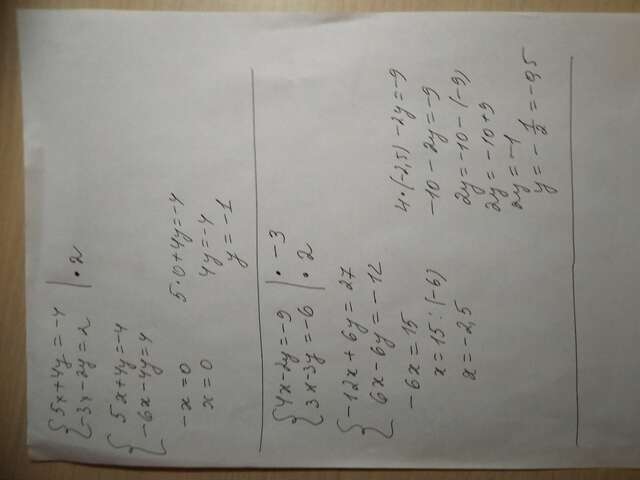 5x+4y=-4
-3x-2y=2 | • 2
5x+4y=-4
-6x-4y=4
-x=0
x=0
5•0+4y=-4
4y=-4
y=-1
4x-2y=-9 | • -3
3x-3y=-6 | • 2
-12x+6y=27
6x-6y=-12
-6x=15
x=15:(-6)
x=-2,5
4•(-2,5)-2y=-9
-10-2y=-9
2y=-10-(-9)
2y=-10+9
2y=-1
y=-1/2=-0,5